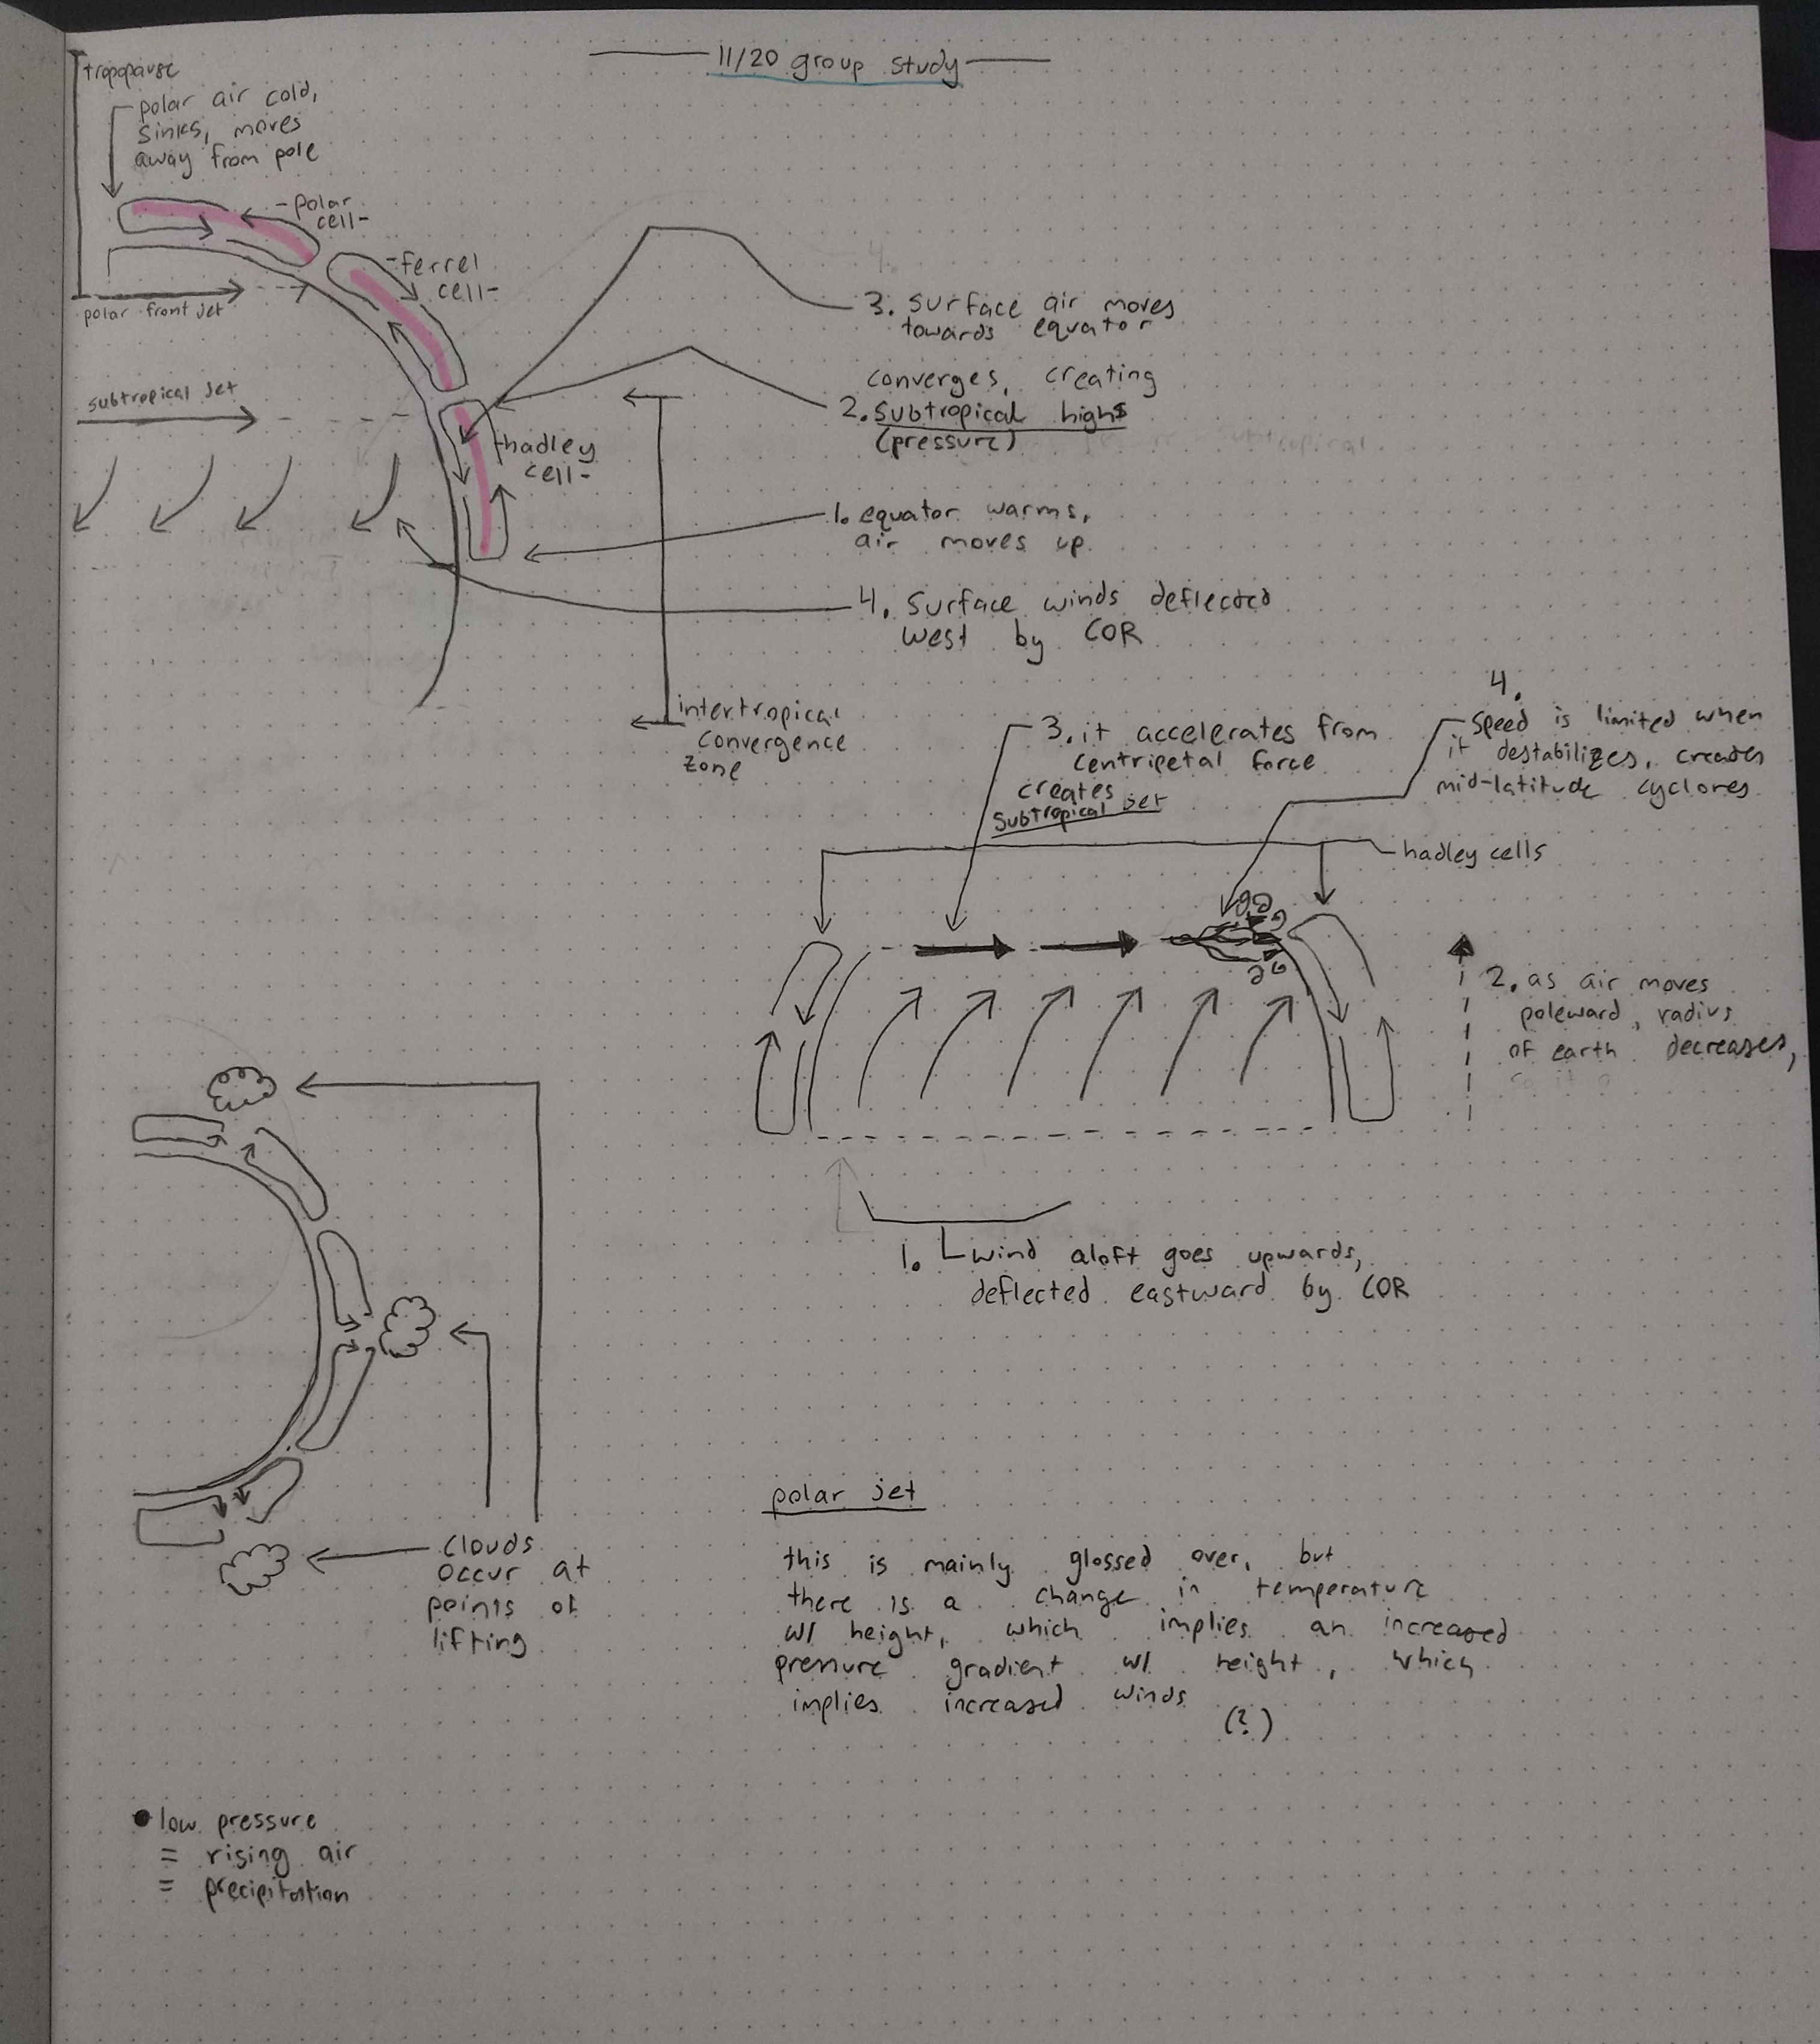 11/20 group study
tropopause
polar air cold,
sinks, moves
away from pole
-polar
cell-
-ferrel
cell-
polar front jet
subtropical jet
-hadley
cell-
4.
3. surface air moves
towards equator
converges, creating
2. subtropical highs
(pressure)
subtropical
1. equator warms,
air moves up
4. surface winds deflected
west by COR
intertropical
convergence
zone
3. it accelerates from
centripetal force
creates
subtropical jet
4.
speed is limited when
it destabilizes, creates
mid-latitude cyclones
hadley cells
2. as air moves
poleward, radius
of earth decreases,
so it a
1. wind aloft goes upwards,
deflected eastward by COR
clouds
occur at
points of
lifting
polar jet
this is mainly glossed over, but
there is a change in temperature
w/ height, which implies an increased
pressure gradient w/ height, which
implies increased winds
(?)
low pressure
= rising air
= precipitation